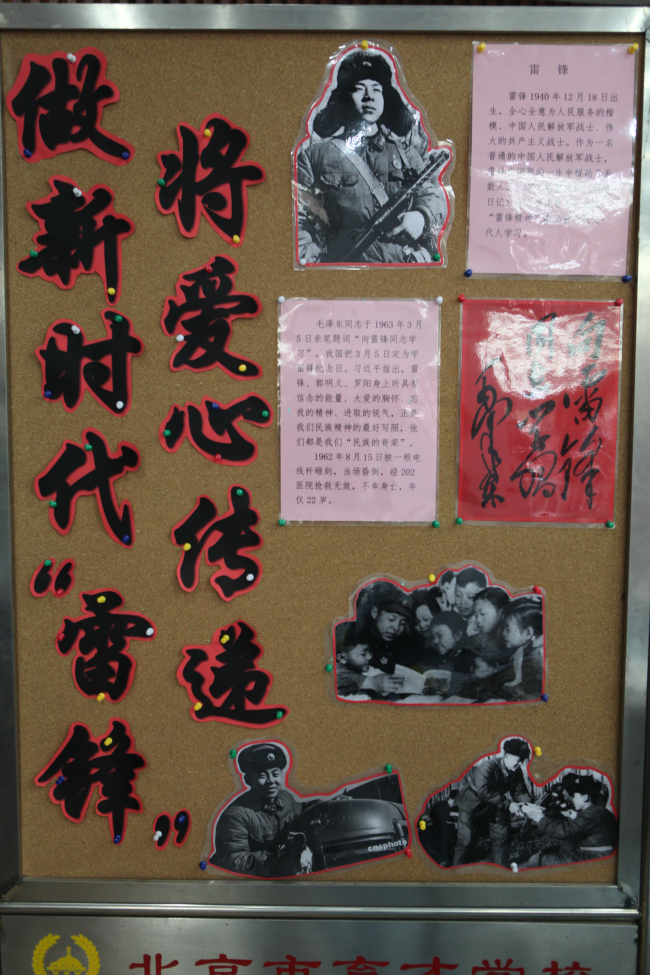 做新时代“雷锋”
将爱心传递
雷 锋
雷锋1940年12月18日出
生，全心全意为人民服务的楷
模、中国人民解放军战士、伟
大的共产主义战士。作为一名
普通的中国人民解放军战士，
的一生中帮助
数人
日记
“雷锋精神”
代人学习。
毛泽东同志于1963年3月
5日亲笔题词“向雷锋同志学
习”，我国把3月5日定为学
雷锋纪念日。习近平指出，雷
锋、郭明义、罗阳身上所具有
信念的能量、大爱的胸怀、忘
我的精神、进取的锐气，正是
我们民族精神的最好写照，他
们都是我们“民族的脊梁”。
1962年8月15日被一根电
线杆砸到，当场昏倒，经202
医院抢救无效，不幸身亡，年
仅22岁。
向雷锋
同志学习
毛泽东
cnsphoto
北京市育才学校